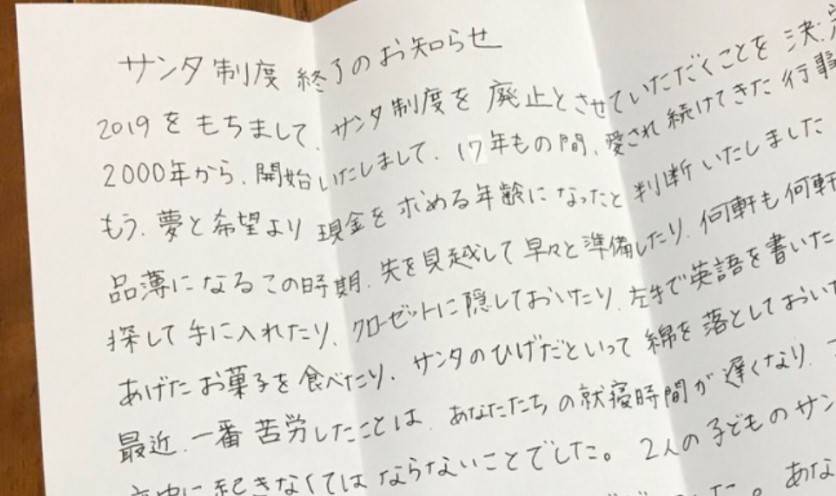 サンタ制度 終了のお知らせ
2019をもちまして、サンタ制度を廃止とさせていただくことを決定
2000年から、開始いたしまして、17年もの間、愛され続けてきた行事
もう、夢と希望より現金を求める年齢になったと判断いたしました
品薄になるこの時期、先を見越して早々と準備したり、何軒も何軒
探して手に入れたり、クローゼットに隠しておいたり、左手で英語を書いた
あげたお菓子を食べたり、サンタのひげだといって綿を落としておいた
最近、一番苦労したことは、あなたたちの就寝時間が遅くなり、
夜中に起きなくてはならないことでした。2人の子どものサン
した。あな